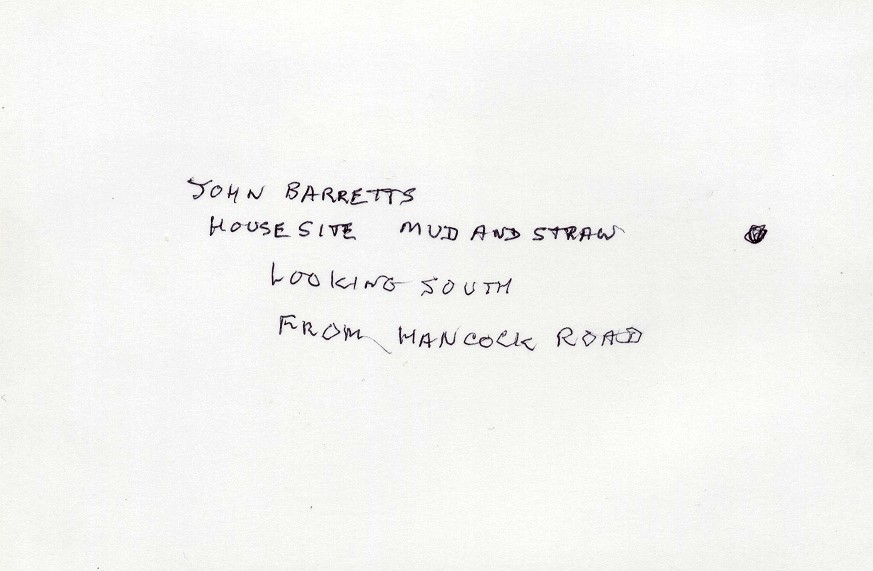 JOHN BARRETTS
HOUSE SITE MUD AND STRAW
LOOKING SOUTH
FROM HANCOCK ROAD